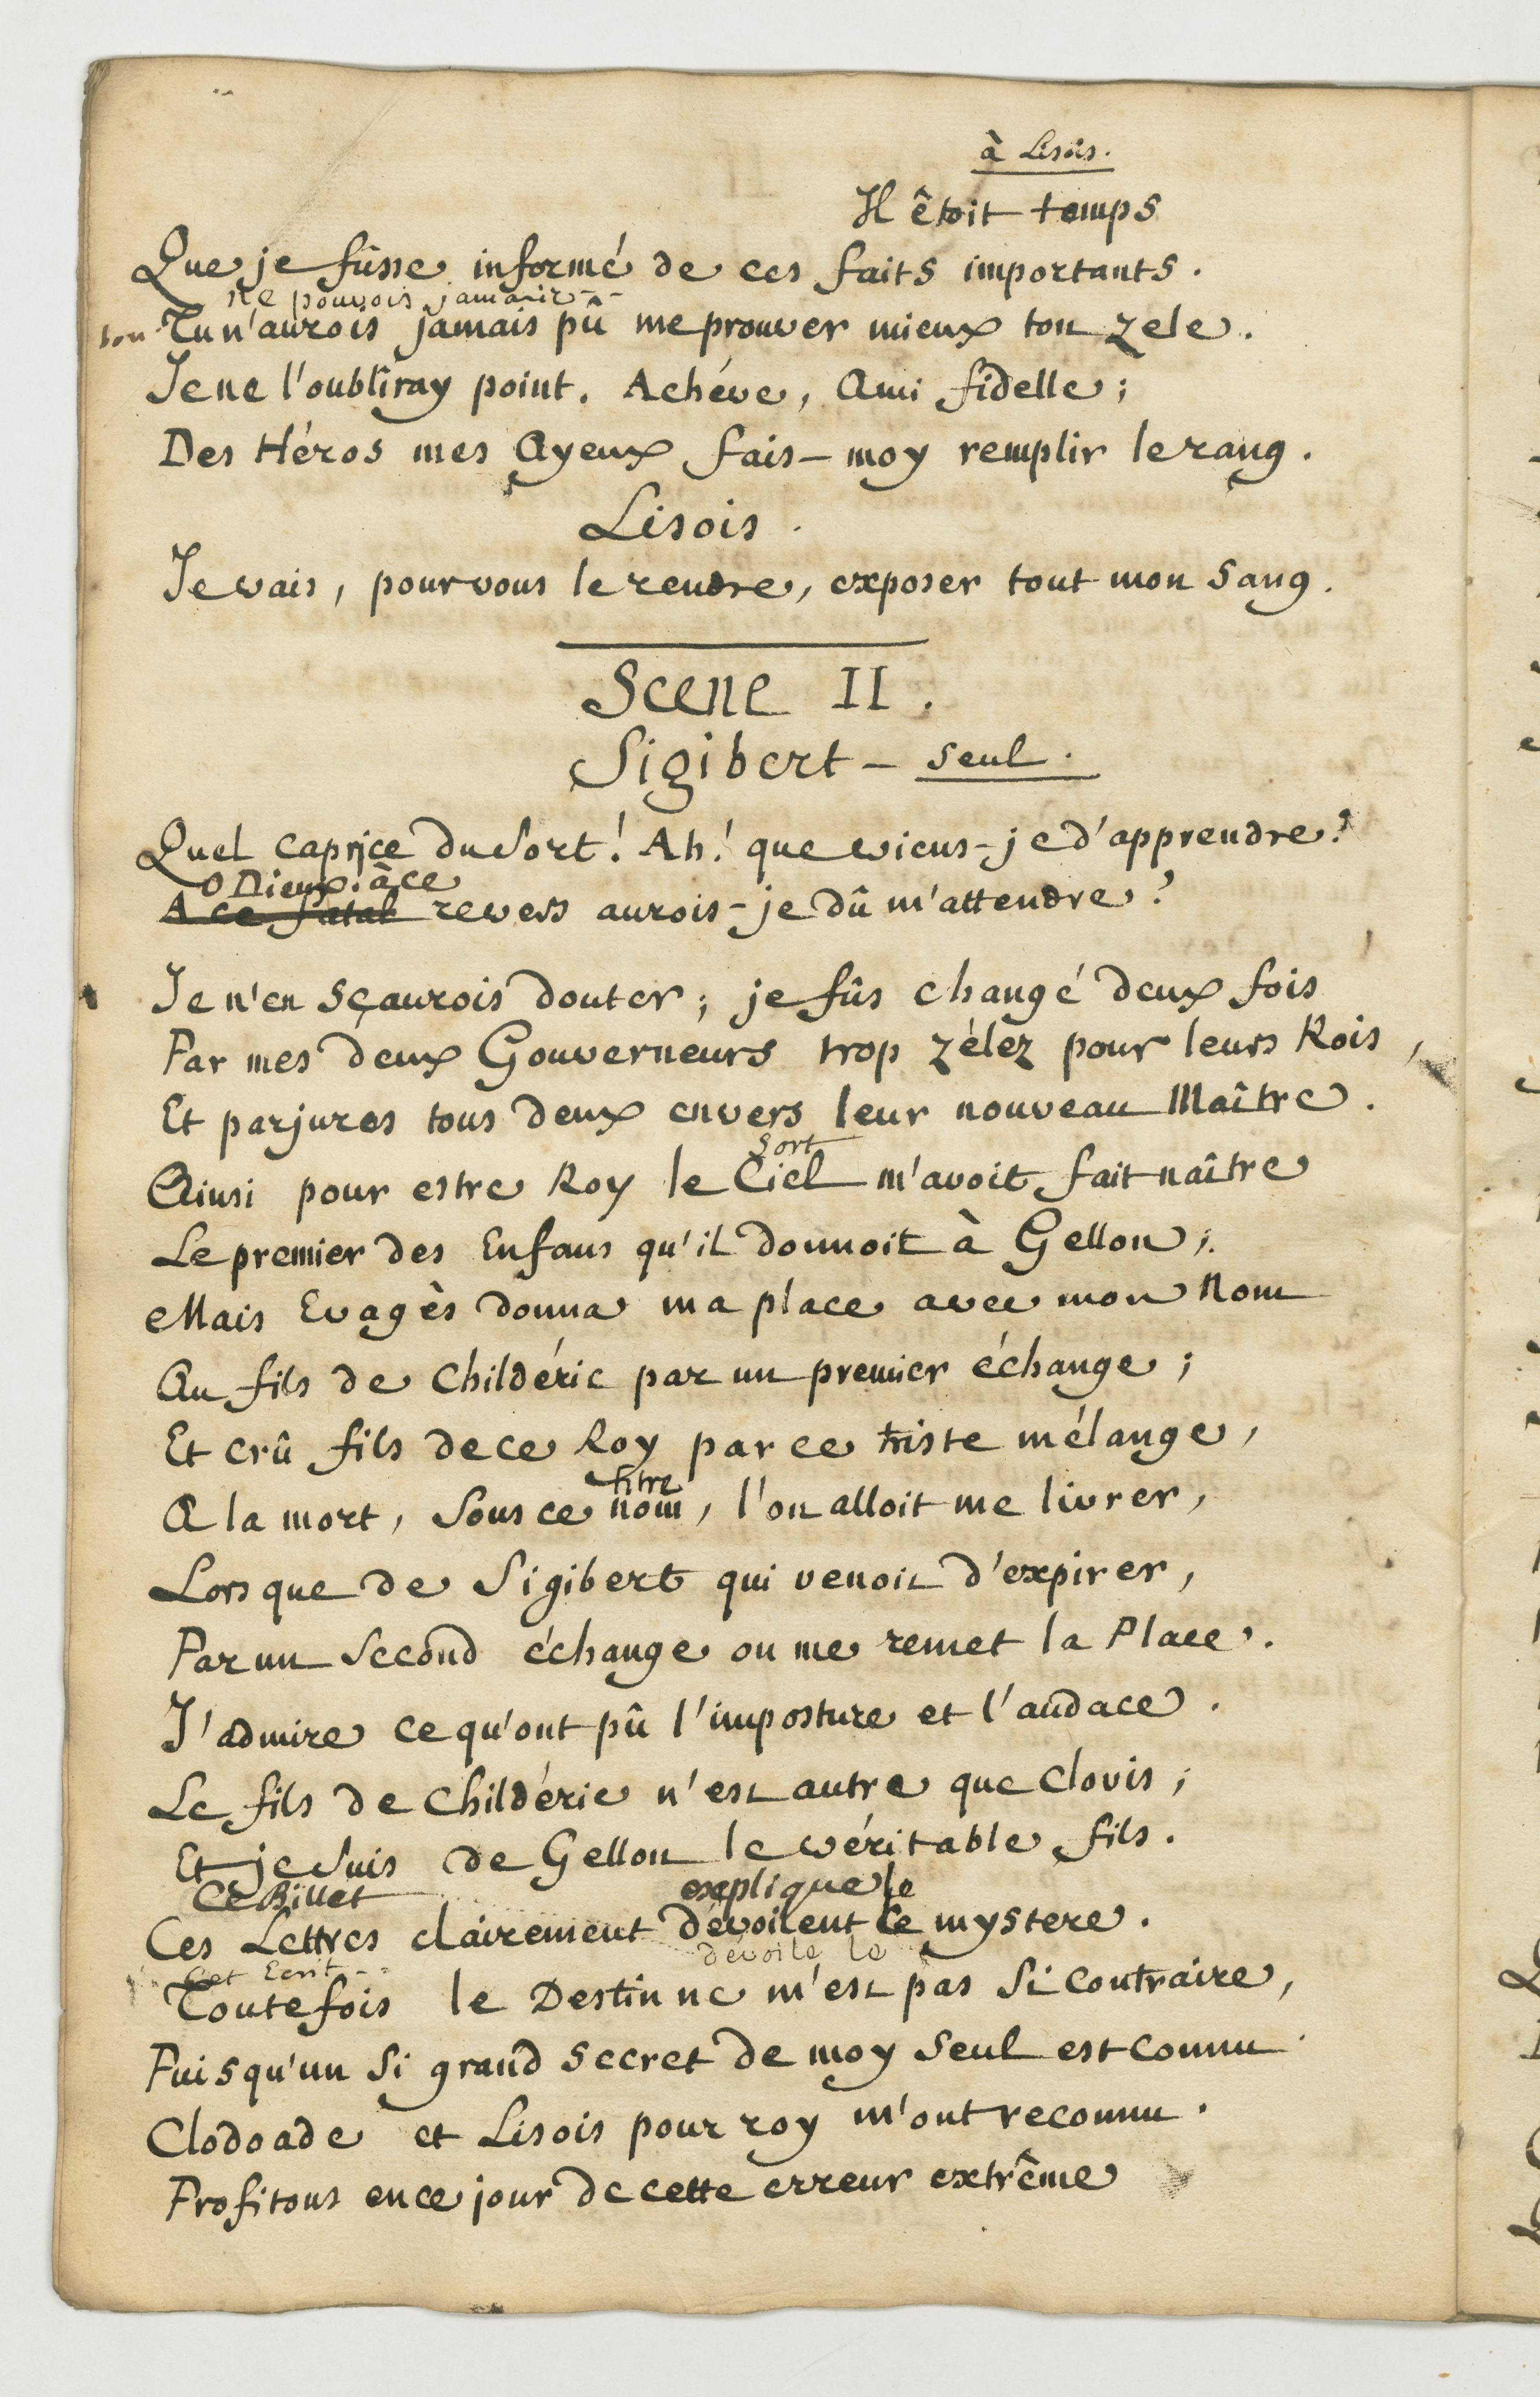 à Lisois.
Il êtoit temps
Que je fûsse informé de ces faits importants.
ne pouvois jamais
Tu n'aurois jamais pû me prouver mieux ton zele.
Je ne l'oubliray point. Achéve, Ami fidelle;
Des Héros mes Ayeux fais-moy remplir le rang.
Lisois.
Je vais, pour vous le rendre, exposer tout mon sang.
Scene II.
Sigibert - seul.
Quel caprice du sort! Ah! que viens-je d'apprendre?
O Dieux. à ce
A ce fatal revers aurois-je dû m'attendre?
Je n'en sçaurois douter; je fûs changé deux fois
Par mes deux Gouverneurs trop zélez pour leurs Rois,
Et parjures tous deux envers leur nouveau Maître.
Sort
Ainsi pour estre Roy le Ciel m'avoit fait naître
Le premier des Enfans qu'il donnoit à Gellon;
Mais Evagès donna ma place avec mon Nom
Au fils de Childéric par un premier échange;
Et crû fils de ce Roy par ce triste mélange,
titre
A la mort, sous ce nom, l'on alloit me livrer,
Lorsque de Sigibert qui venoit d'expirer,
Par un second échange on me remet la Place.
J'admire ce qu'ont pû l'imposture et l'audace.
Le fils de Childéric n'est autre que Clovis;
Et je suis de Gellon le véritable fils.
Ce Billet explique le
Ces Lettres clairement dévoilent ce mystere.
Cet Ecrit dévoile le
Toutefois le Destin ne m'est pas si contraire,
Puisqu'un si grand secret de moy seul est connu.
Clodoade et Lisois pour roy m'ont reconnu.
Profitons en ce jour de cette erreur extrême